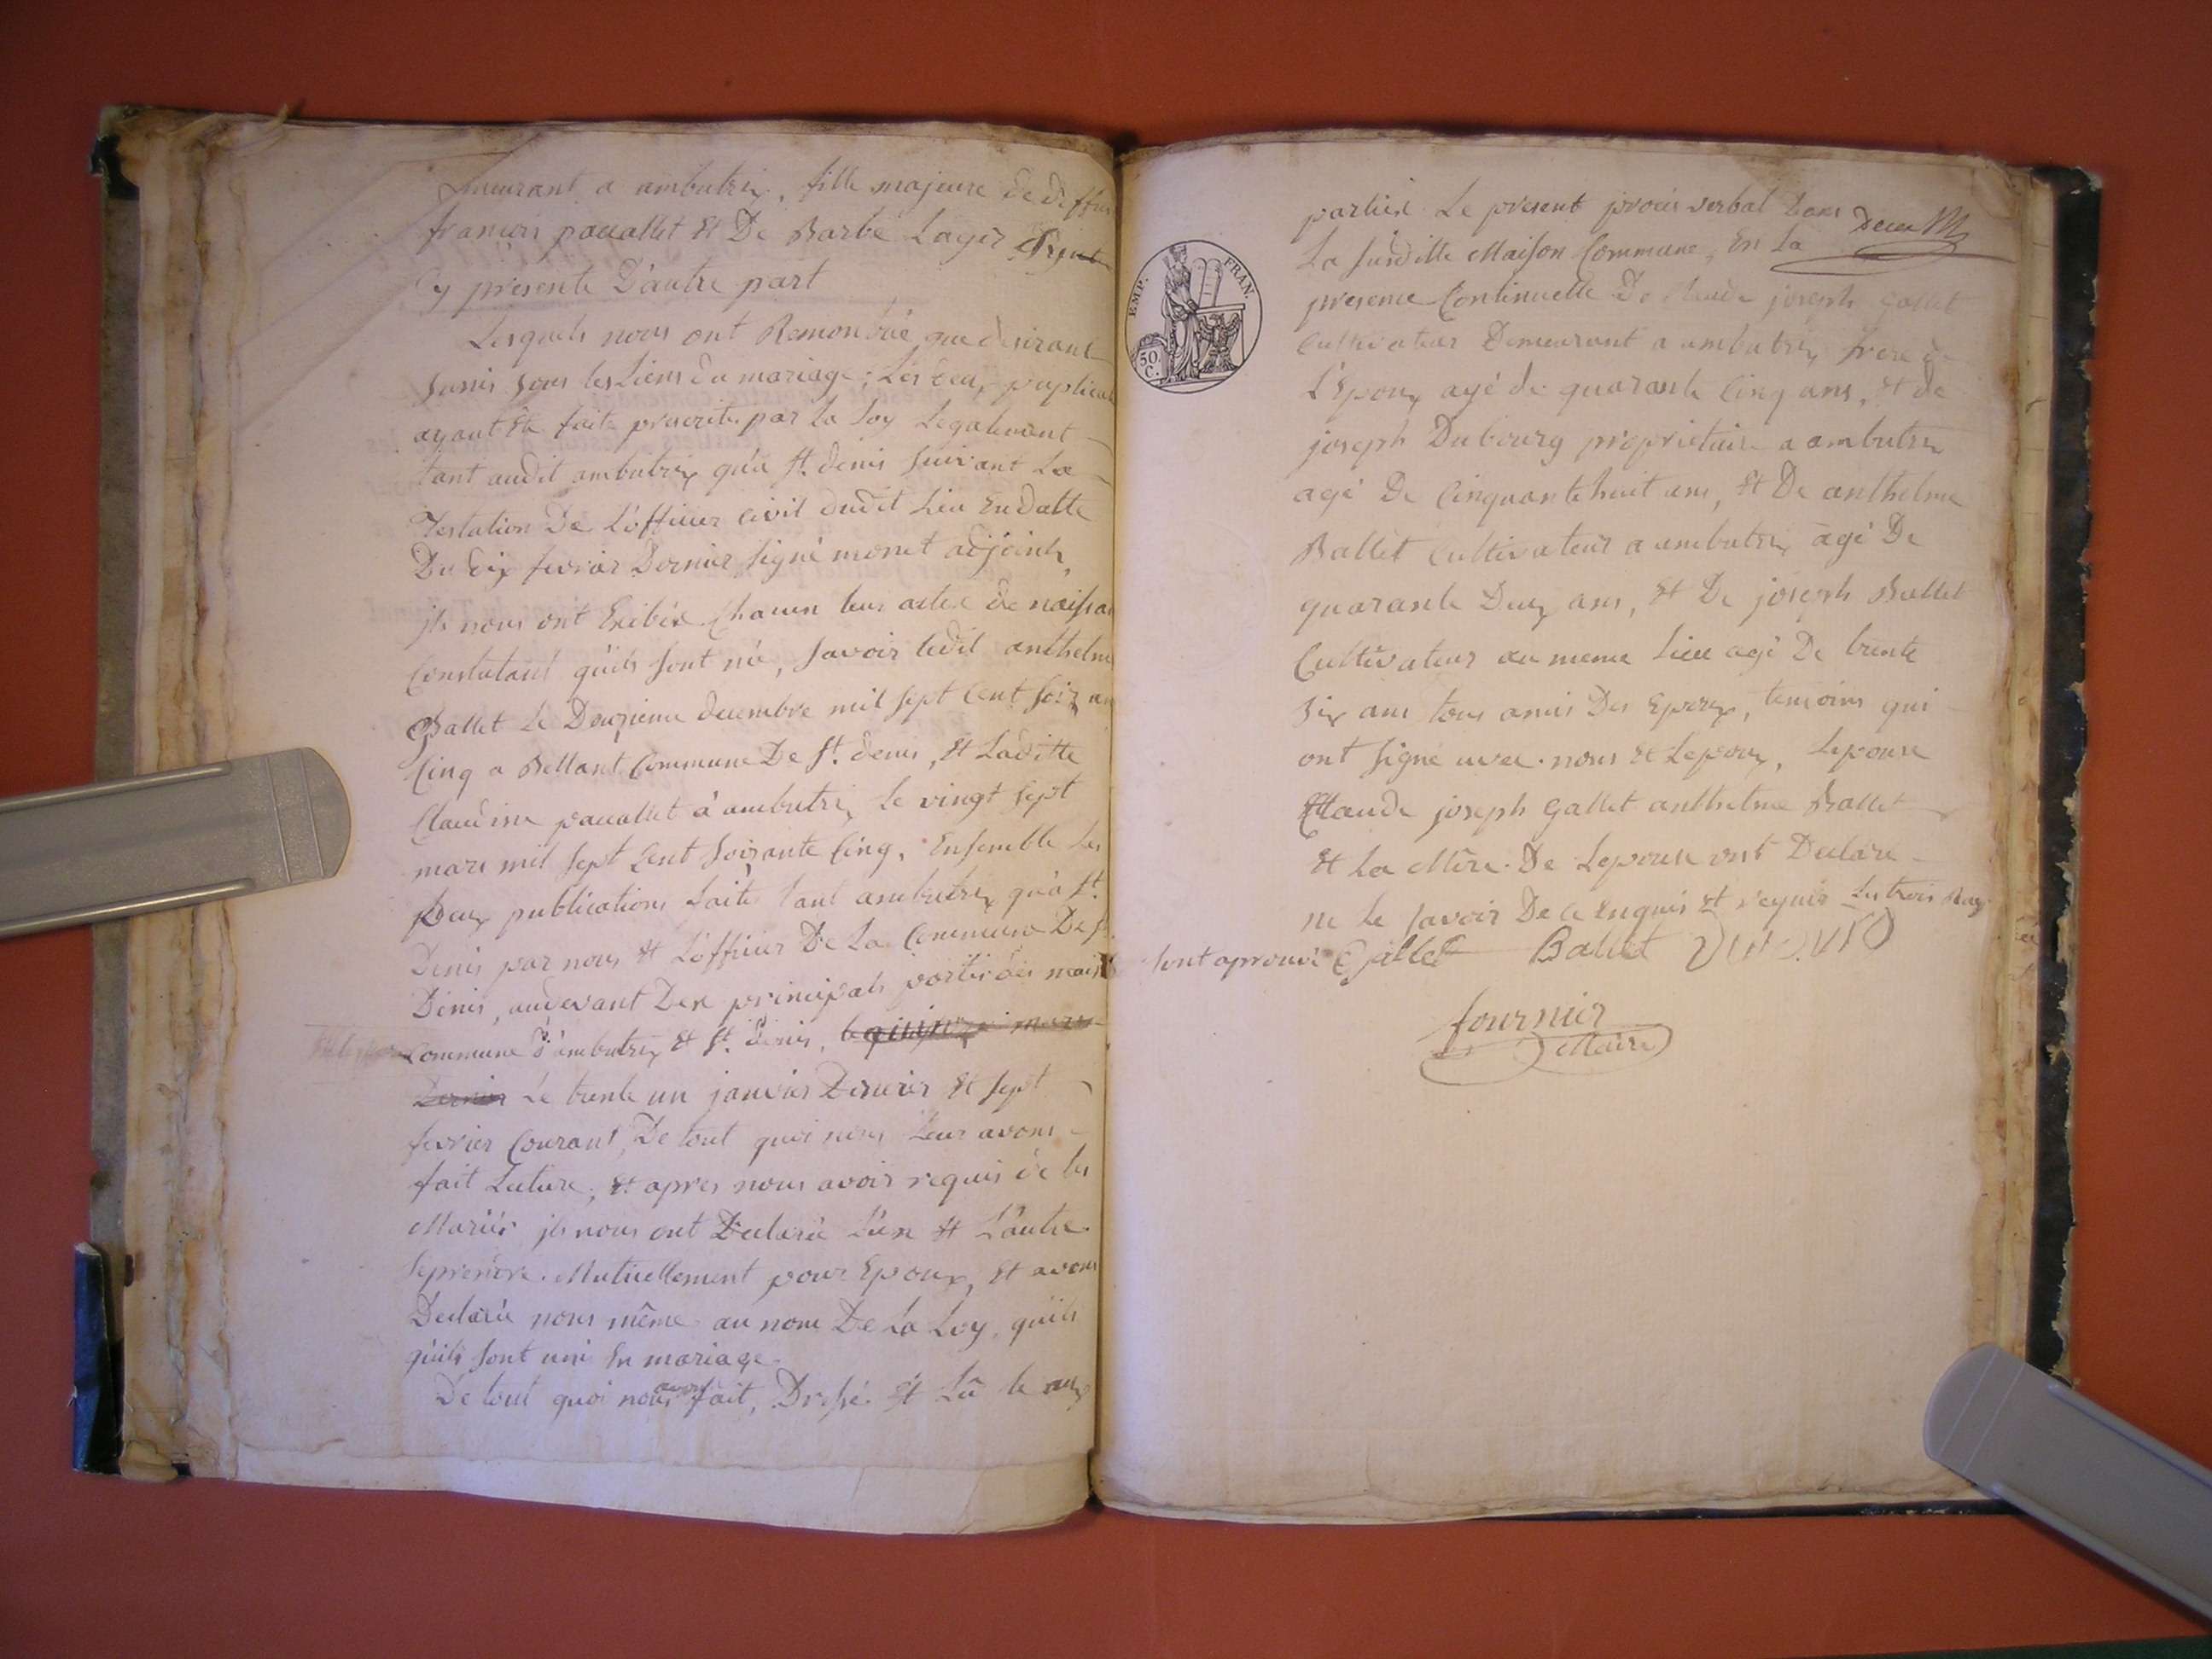 meurant a ambutrix, fille majeure de deffun
francois pacallet Et De Barbe Lager
Cy presente D'autre part
Lesquels nous ont Remontrée que desirant
sunir sous les Liens du mariage; Les deux puplication
ayant Eté faite prescrite par la Loy Legalement
tant audit ambutrix qu'a St. denis suivant La
testation De L'officier civil dudit Lieu En datte
Du dix fevrier Dernier signé monet adjoint,
jls nous ont Exibée Chacun leur actes de naissan
Constatant quils sont née, savoir ledit anthelme
Gallet Le Deuxieme decembre mil sept Cent soixan
Cinq a Bettant Commune De St. denis, Et Laditte
Claudine pacallet à ambutrix le vingt sept
mars mil sept Cent soixante Cinq, Ensemble Les
Deux publications faite tant ambutrix qu'a St.
Denis par nous Et L'officier De La Commune De St
Denis, audevant Des principals portes des mais
Commune d'ambutrix Et St. denis, le quinze mars
Dernier Le trente un janvier Dernier Et sept
fevrier Courant, De tout quoi nous Leur avons
fait Lecture; Et apres nous avoir requis de les
Mariér jls nous ont Declarée L'un Et L'autre
seprendre Mutuellement pour Epoux, Et avons
Declarée nous même au nom De La Loy, quils
quils sont uni En mariage.
De tout quoi nous avons fait, Dressé Et Lû le aux
parties Le present procés verbal Dans
La susditte Maison Commune, En La
presence Continuelle De Claude joseph Gallet
Cultivateur Demeurant a ambutrix frere de
L'Epoux agé de quarante Cinq ans, Et de
joseph Dubourg proprietaire a ambutrix
agé De Cinquante huit ans, Et De anthelme
Ballet Cultivateur a ambutrix agé De
quarante Deux ans, Et De joseph Ballet
Cultivateur au meme Lieu agé De trente
six ans tous amis Des Epoux, temoins qui
ont signé avec nous Et Lepoux, Lepouse
Claude joseph Gallet anthelme Ballet
Et La Mère De Lepouse ont Declaré
ne Le savoir De ce Enquis Et requis Les trois Ray
sont aprouvé Gallet Ballet
fournier
Maire
EMP. FRAN.
50.
C.